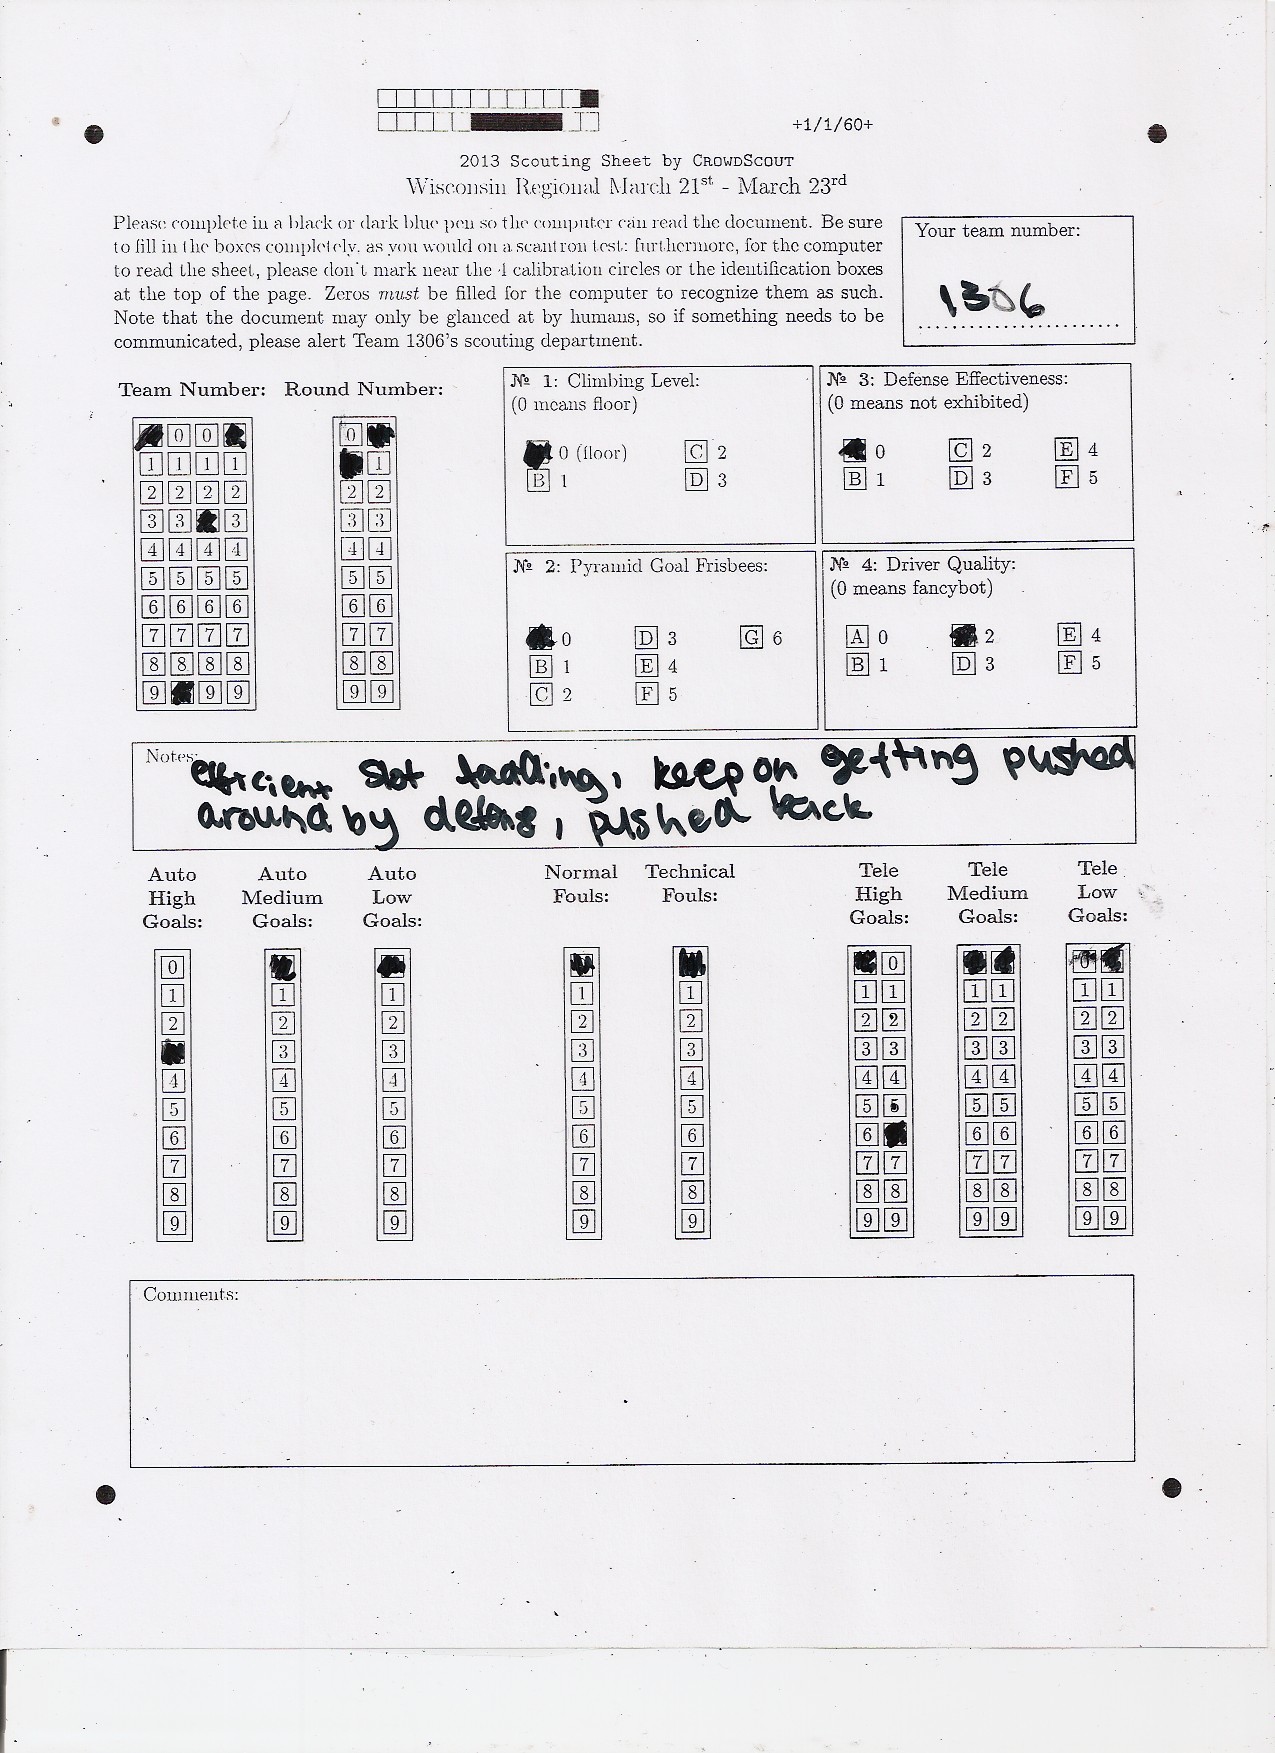 +1/1/60+
2013 Scouting Sheet by CROWDSCOUT
Wisconsin Regional March 21st - March 23rd
Please complete in a black or dark blue pen so the computer can read the document. Be sure
to fill in the boxes completely, as you would on a scantron test; furthermore, for the computer
to read the sheet, please don't mark near the 4 calibration circles or the identification boxes
at the top of the page. Zeros must be filled for the computer to recognize them as such.
Note that the document may only be glanced at by humans, so if something needs to be
communicated, please alert Team 1306's scouting department.
Your team number:
1306
Team Number: Round Number:
0 0 0
1 1 1 1 1
2 2 2 2 2 2
3 3 3 3 3
4 4 4 4 4 4
5 5 5 5 5 5
6 6 6 6 6 6
7 7 7 7 7 7
8 8 8 8 8 8
9 9 9 9 9
№ 1: Climbing Level:
(0 means floor)
0 (floor) C 2
B 1 D 3
№ 3: Defense Effectiveness:
(0 means not exhibited)
0 C 2 E 4
B 1 D 3 F 5
№ 2: Pyramid Goal Frisbees:
0 D 3 G 6
B 1 E 4
C 2 F 5
№ 4: Driver Quality:
(0 means fancybot)
A 0 2 E 4
B 1 D 3 F 5
Notes:
efficient slot loading, keep on getting pushed
around by defense, pushed back
Auto High Goals: Auto Medium Goals: Auto Low Goals: Normal Fouls: Technical Fouls: Tele High Goals: Tele Medium Goals: Tele Low Goals:
0 0 0
1 1 1 1 1 1 1 1 1 1 1
2 2 2 2 2 2 2 2 2 2 2
3 3 3 3 3 3 3 3 3 3
4 4 4 4 4 4 4 4 4 4 4
5 5 5 5 5 5 5 5 5 5 5
6 6 6 6 6 6 6 6 6 6
7 7 7 7 7 7 7 7 7 7 7
8 8 8 8 8 8 8 8 8 8 8
9 9 9 9 9 9 9 9 9 9 9
Comments: